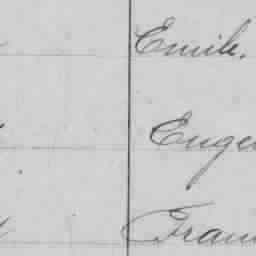 Emile.
Euge
Fran